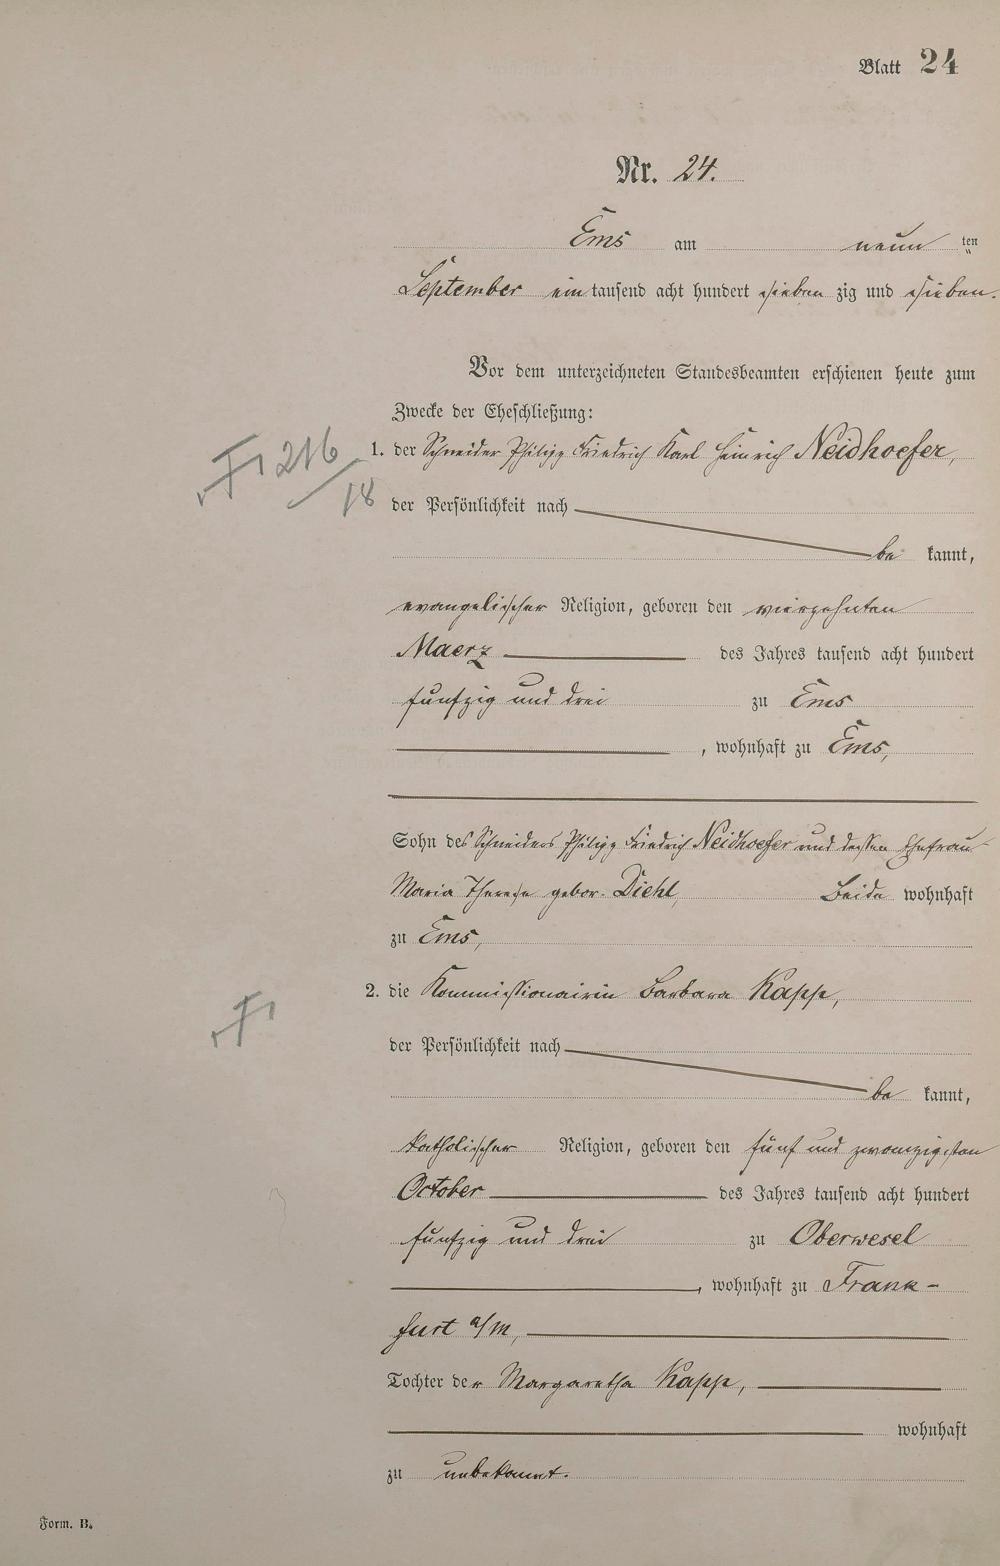 Blatt 24
Nr. 24.
Ems am neun ten
September ein tausend acht hundert sieben zig und sieben.
Vor dem unterzeichneten Standesbeamten erschienen heute zum
Zwecke der Eheschließung:
1. der Schneider Philipp Friedrich Karl Heinrich Neidhoefer,
F 216/18
der Persönlichkeit nach
be kannt,
evangelischer Religion, geboren den vierzehnten
Maerz des Jahres tausend acht hundert
funfzig und drei zu Ems
, wohnhaft zu Ems,
Sohn des Schneiders Philipp Friedrich Neidhoefer und dessen Ehefrau
Maria Therese gebor. Diehl, Beide wohnhaft
zu Ems,
2. die Kommissionairin Barbara Kapp,
F
der Persönlichkeit nach
be kannt,
katholischer Religion, geboren den fünf und zwanzigsten
October des Jahres tausend acht hundert
funfzig und drei zu Oberwesel
, wohnhaft zu Frank-
furt a/M,
Tochter der Margaretha Kapp,
wohnhaft
zu unbekannt.
Form. B.